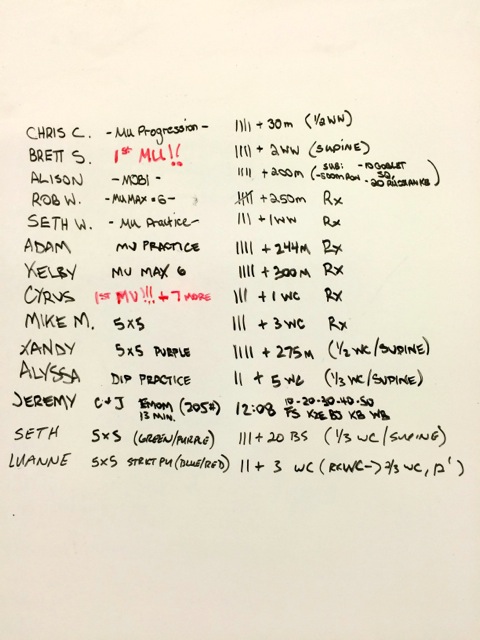 CHRIS C. - MU Progression - |||| + 30m (1/2 WW)
BRETT S. 1st MU!! |||| + 2WW (SUPINE)
ALISON - MOBI - |||| + 200m (-SUB: -500m ROW - 10 GOBLET SQ, - 20 RUSSIAN KB)
ROB W. - MU MAX • 6 - 卌 + 250m Rx
SETH W. - MU Practice - ||| + 1 WW Rx
ADAM MU PRACTICE |||| + 244m Rx
KELBY MU MAX 6 |||| + 300m Rx
CYRUS 1st MU!!! + 7 MORE ||| + 1 WC Rx
MIKE M. 5x5 ||| + 3 WC Rx
XANDY 5x5 PURPLE |||| + 275m (1/2 WC/SUPINE)
ALYSSA DIP PRACTICE || + 5 WC (1/3 WC/SUPINE)
JEREMY C+J EMOM (205#) 13 MIN. 12:08 10-20-30-40-50 FS K2E BJ KB WB
SETH 5x5 (GREEN/PURPLE) ||| + 20 BS (1/3 WC/SUPINE)
LUANNE 5x5 STRICT PU (BLUE/RED) || + 3 WC (RxWC-> 2/3 WC, 12')